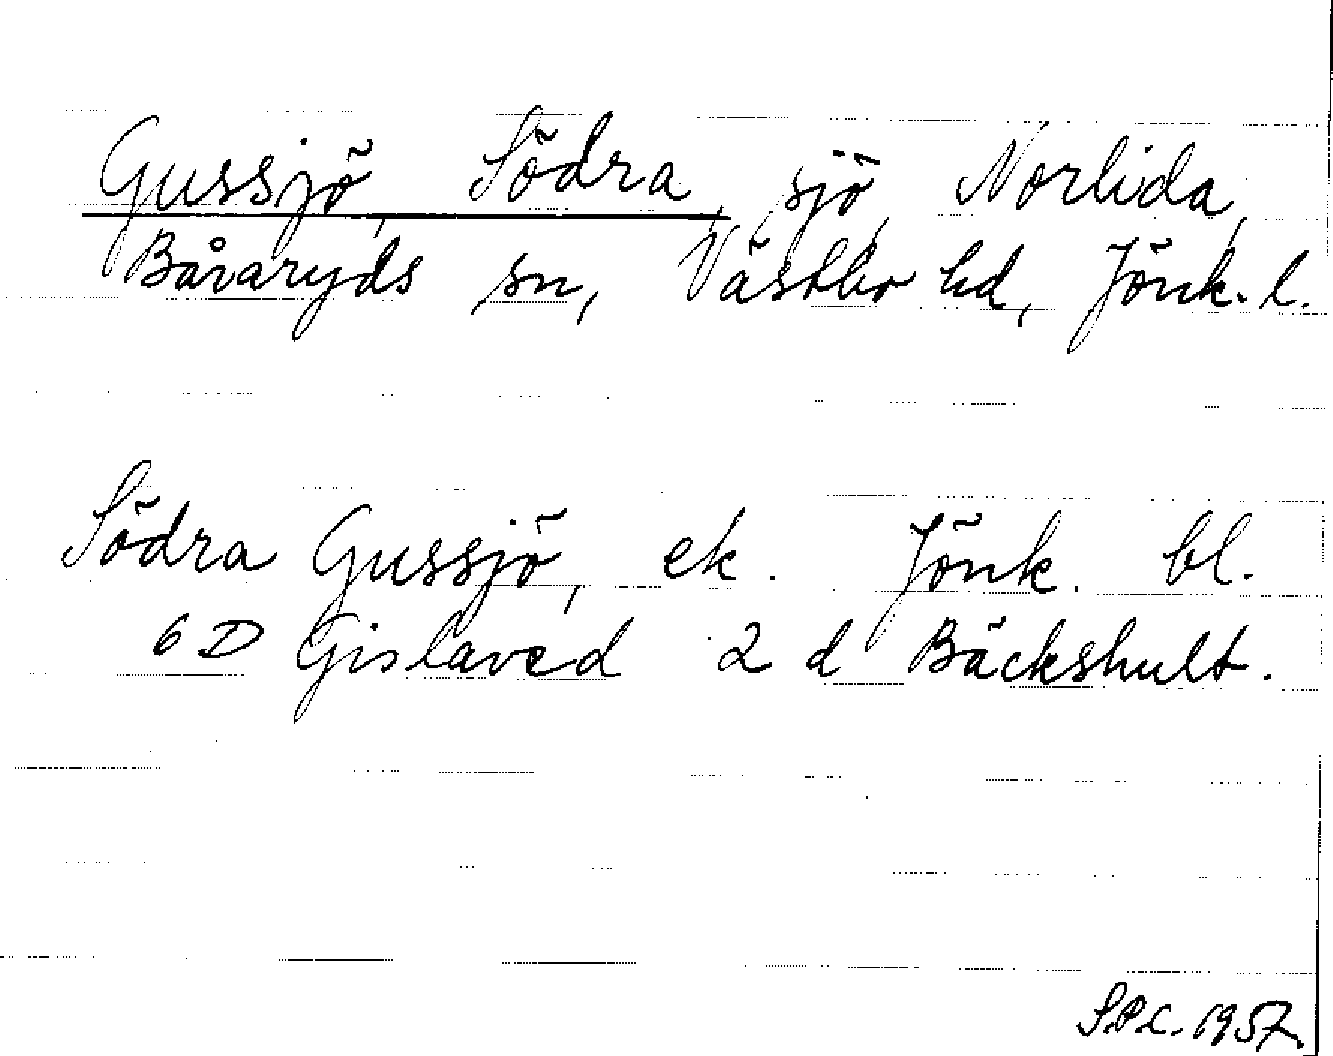 Gussjö, Södra, sjö, Norlida,
Båvaryds sn, Västbo hd, Jönk. l.
Södra Gussjö, ek. Jönk. bl.
6 D Gislaved 2 d Bäckshult.
S.P.C. 1957.